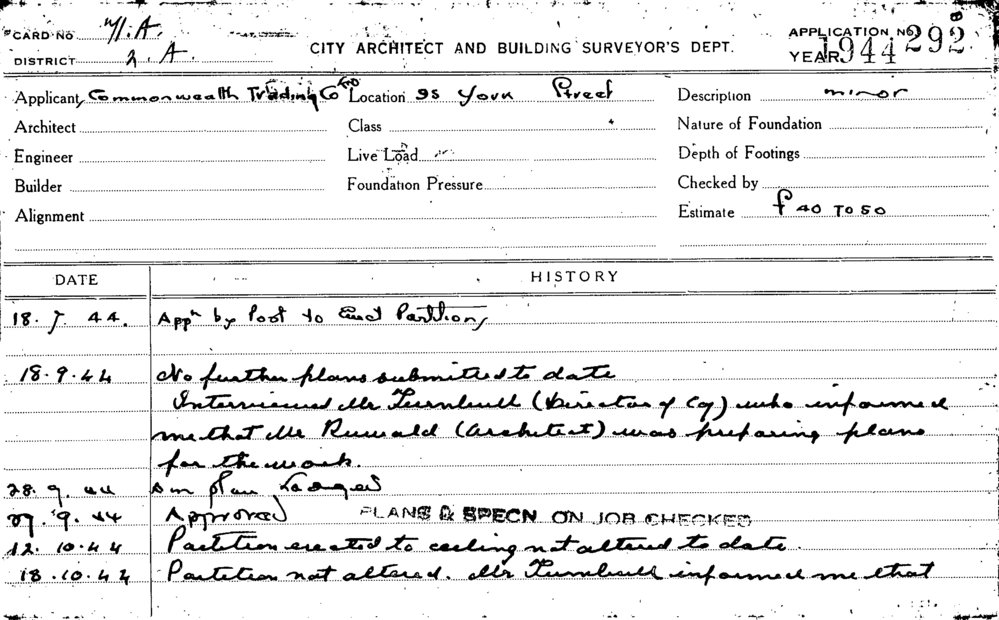 CARD NO 71.A.
DISTRICT 2.A.
CITY ARCHITECT AND BUILDING SURVEYOR'S DEPT.
APPLICATION NO 292B
YEAR 1944
Applicant Commonwealth Trading Co Location 95 York Street Description minor
Architect Class Nature of Foundation
Engineer Live Load Depth of Footings
Builder Foundation Pressure Checked by
Alignment Estimate £40 TO 50
DATE HISTORY
18.7.44. Appn by Post to Erect Partitions
18.9.44 No further plans submitted to date
Interviewed Mr Turnbull (Director of Coy) who informed
me that Mr Ruwald (Architect) was preparing plans
for the work.
28.9.44 plan Lodged
29.9.44 Approved PLANS & SPECN ON JOB CHECKED
12.10.44 Partition erected to ceiling not altered to date.
18.10.44 Partition not altered. Mr Turnbull informed me that